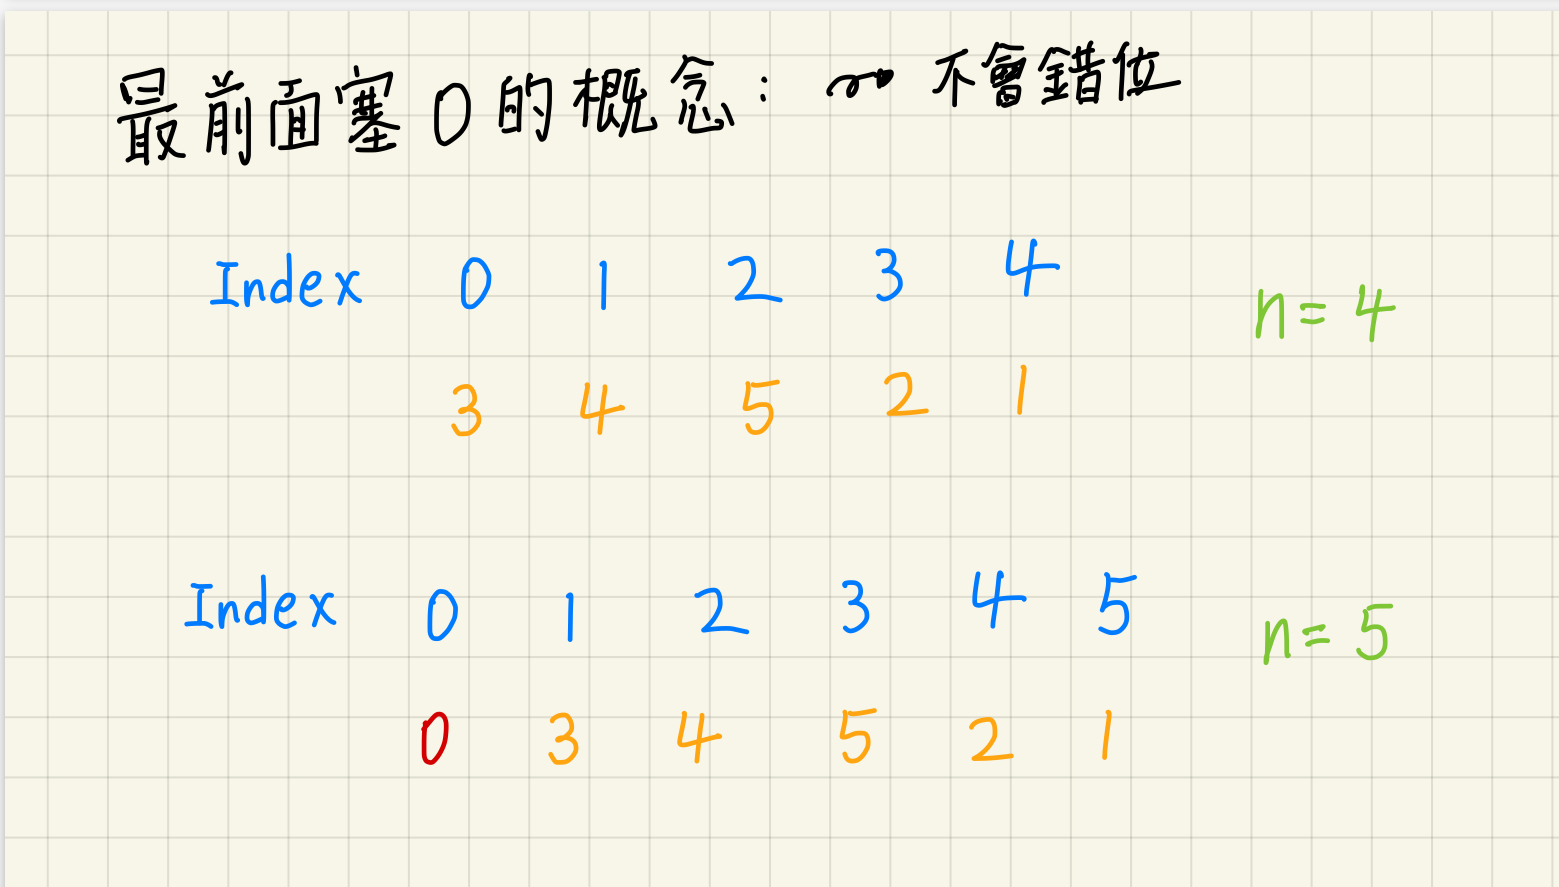 最前面塞 0 的概念： 不會錯位
Index 0 1 2 3 4 n = 4
3 4 5 2 1
Index 0 1 2 3 4 5 n = 5
0 3 4 5 2 1